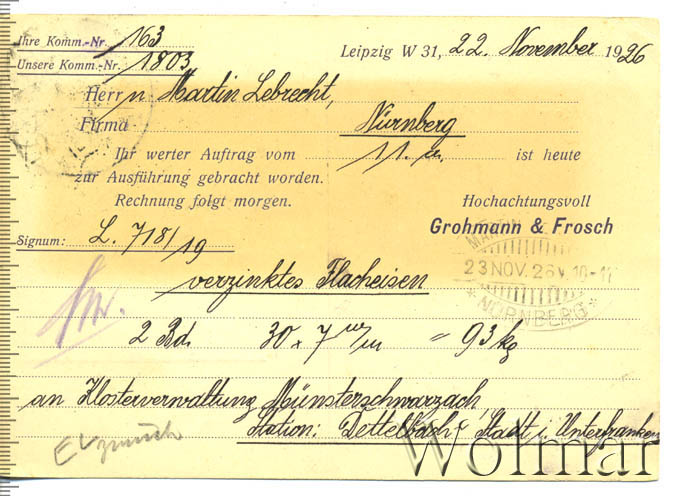 Ihre Komm.-Nr. 163
Leipzig W 31, 22. November 1926
Unsere Komm.-Nr. 1803
Herrn Martin Lebrecht,
Firma Nürnberg
Ihr werter Auftrag vom 11. ist heute
zur Ausführung gebracht worden.
Rechnung folgt morgen.
Hochachtungsvoll
Grohmann & Frosch
Signum: L. 718/19
MARTIN
23 NOV. 26 V. 10-11
* NÜRNBERG *
verzinktes Flacheisen
2 Bd. 30 x 7 m/m = 93 kg
an Klosterverwaltung Münsterschwarzach,
Station: Dettelbach, Stadt i. Unterfranken
Wolmar